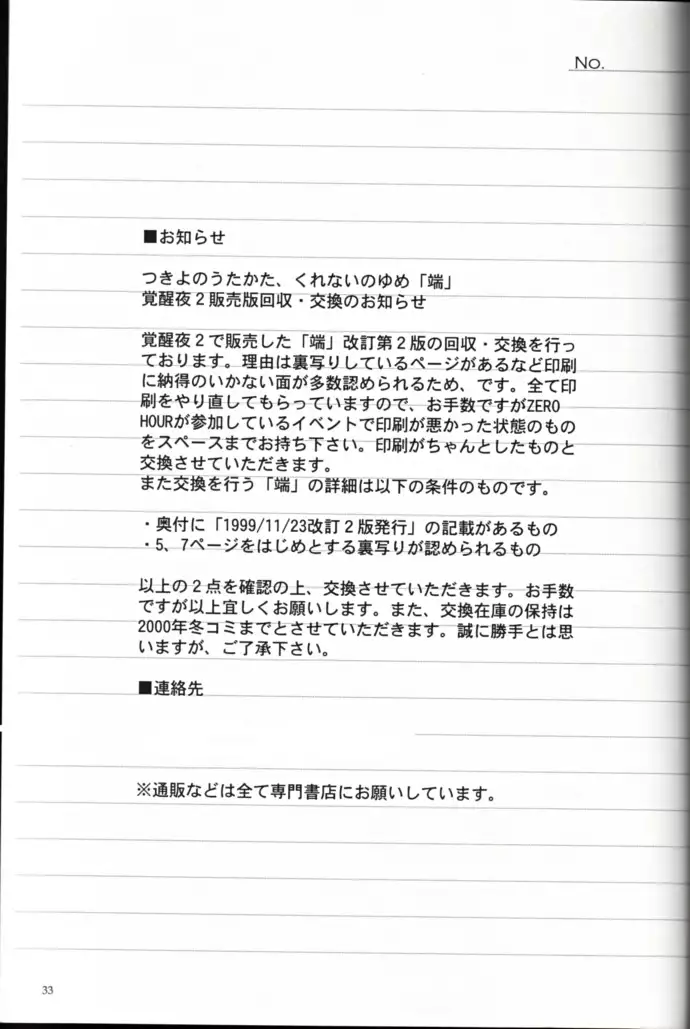 No.
■お知らせ
つきよのうたかた、くれないのゆめ「端」
覚醒夜２販売版回収・交換のお知らせ
覚醒夜２で販売した「端」改訂第２版の回収・交換を行っ
ております。理由は裏写りしているページがあるなど印刷
に納得のいかない面が多数認められるため、です。全て印
刷をやり直してもらっていますので、お手数ですがZERO
HOURが参加しているイベントで印刷が悪かった状態のもの
をスペースまでお持ち下さい。印刷がちゃんとしたものと
交換させていただきます。
また交換を行う「端」の詳細は以下の条件のものです。
・奥付に「1999/11/23改訂２版発行」の記載があるもの
・5、7ページをはじめとする裏写りが認められるもの
以上の２点を確認の上、交換させていただきます。お手数
ですが以上宜しくお願いします。また、交換在庫の保持は
2000年冬コミまでとさせていただきます。誠に勝手とは思
いますが、ご了承下さい。
■連絡先
※通販などは全て専門書店にお願いしています。
33